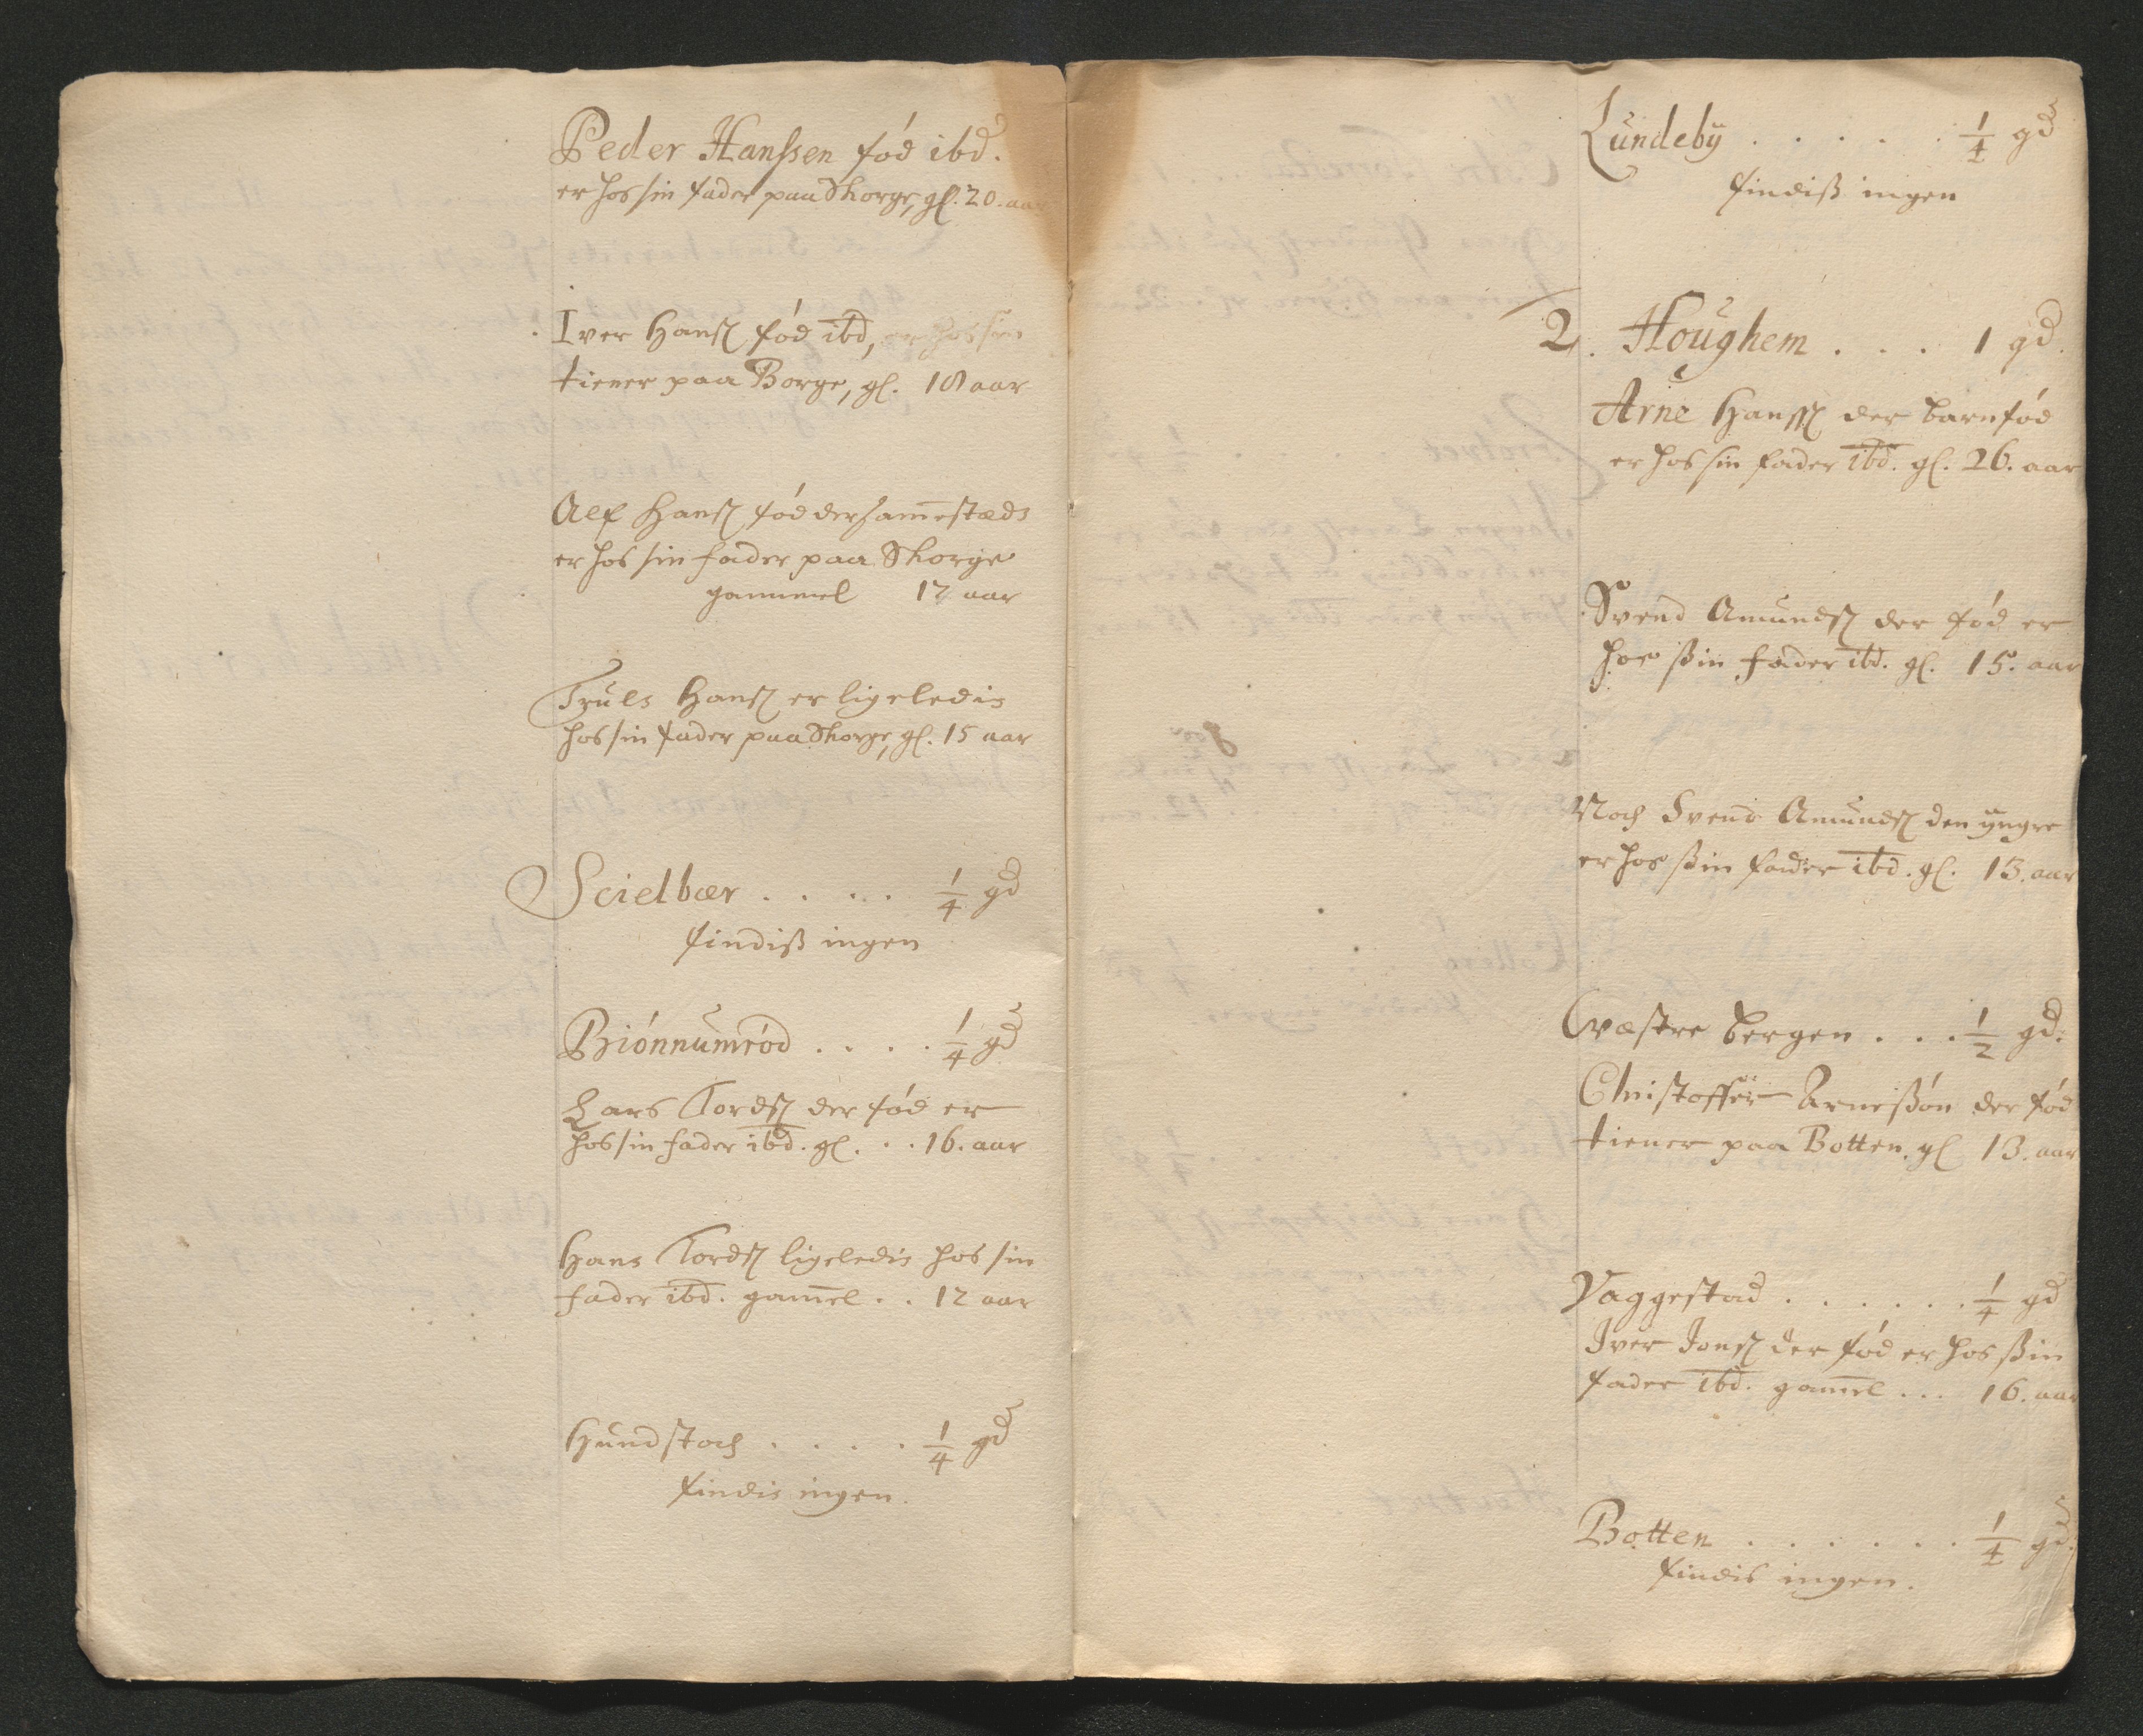 Peder Hanssen fód ibd.
er hos sin fader paa Skorge, gl. 20. aar
Iver Hans fód ibd, er hos sin
tiener paa Borge, gl. 18 aar
Alf Hans fód der sam̄estæds
er hos sin fader paa Skorge
gammel 17 aar
Truls Hans er ligeledis
hos sin fader paa Skorge, gl. 15 aar
Scielbær . . . . . 1/4 gd
findiß ingen
Biónnumród . . . . 1/4 gd
Lars Tords der fód er
hos sin fader ibd. gl. . . 16. aar
Hans Tords ligeledis hos sin
fader ibd. gam̄el . . 12 aar
Hundstoch . . . . 1/4 gd
findis ingen.
Lundebÿ . . . . . 1/4 gd
findiß ingen
2. Houghem . . . 1 gd.
Arne Hanss der barnfód
er hos sin fader ibd. gl. 26. aar
Svend Amunds der fód er
hos ßin fader ibd. gl. 15. aar
Noch Svend Amunds den ÿngre
er hos ßin fader ibd. gl. 13. aar
Væstre bergen . . . 1/2 gd.
Christoffer Arneßón der fód
tiener paa Botten. gl 13. aar
Vaggestad . . . . . . 1/4 gd
Iver Jons der fód er hos ßin
fader ibd. gam̄el . . . 16. aar
Botten . . . . . . 1/4 gd.
findis ingen.